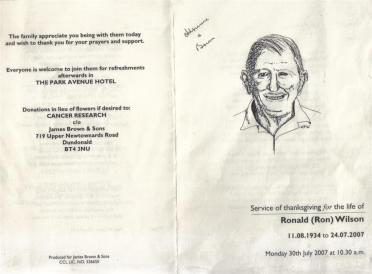 The family appreciate you being with them today
and wish to thank you for your prayers and support.
Everyone is welcome to join them for refreshments
afterwards in
THE PARK AVENUE HOTEL
Donations in lieu of flowers if desired to:
CANCER RESEARCH
c/o
James Brown & Sons
719 Upper Newtownards Road
Dundonald
BT4 3NU
Produced for James Brown & Sons
CCL LIC. NO. 328650
Service of thanksgiving for the life of
Ronald (Ron) Wilson
11.08.1934 to 24.07.2007
Monday 30th July 2007 at 10.30 a.m.